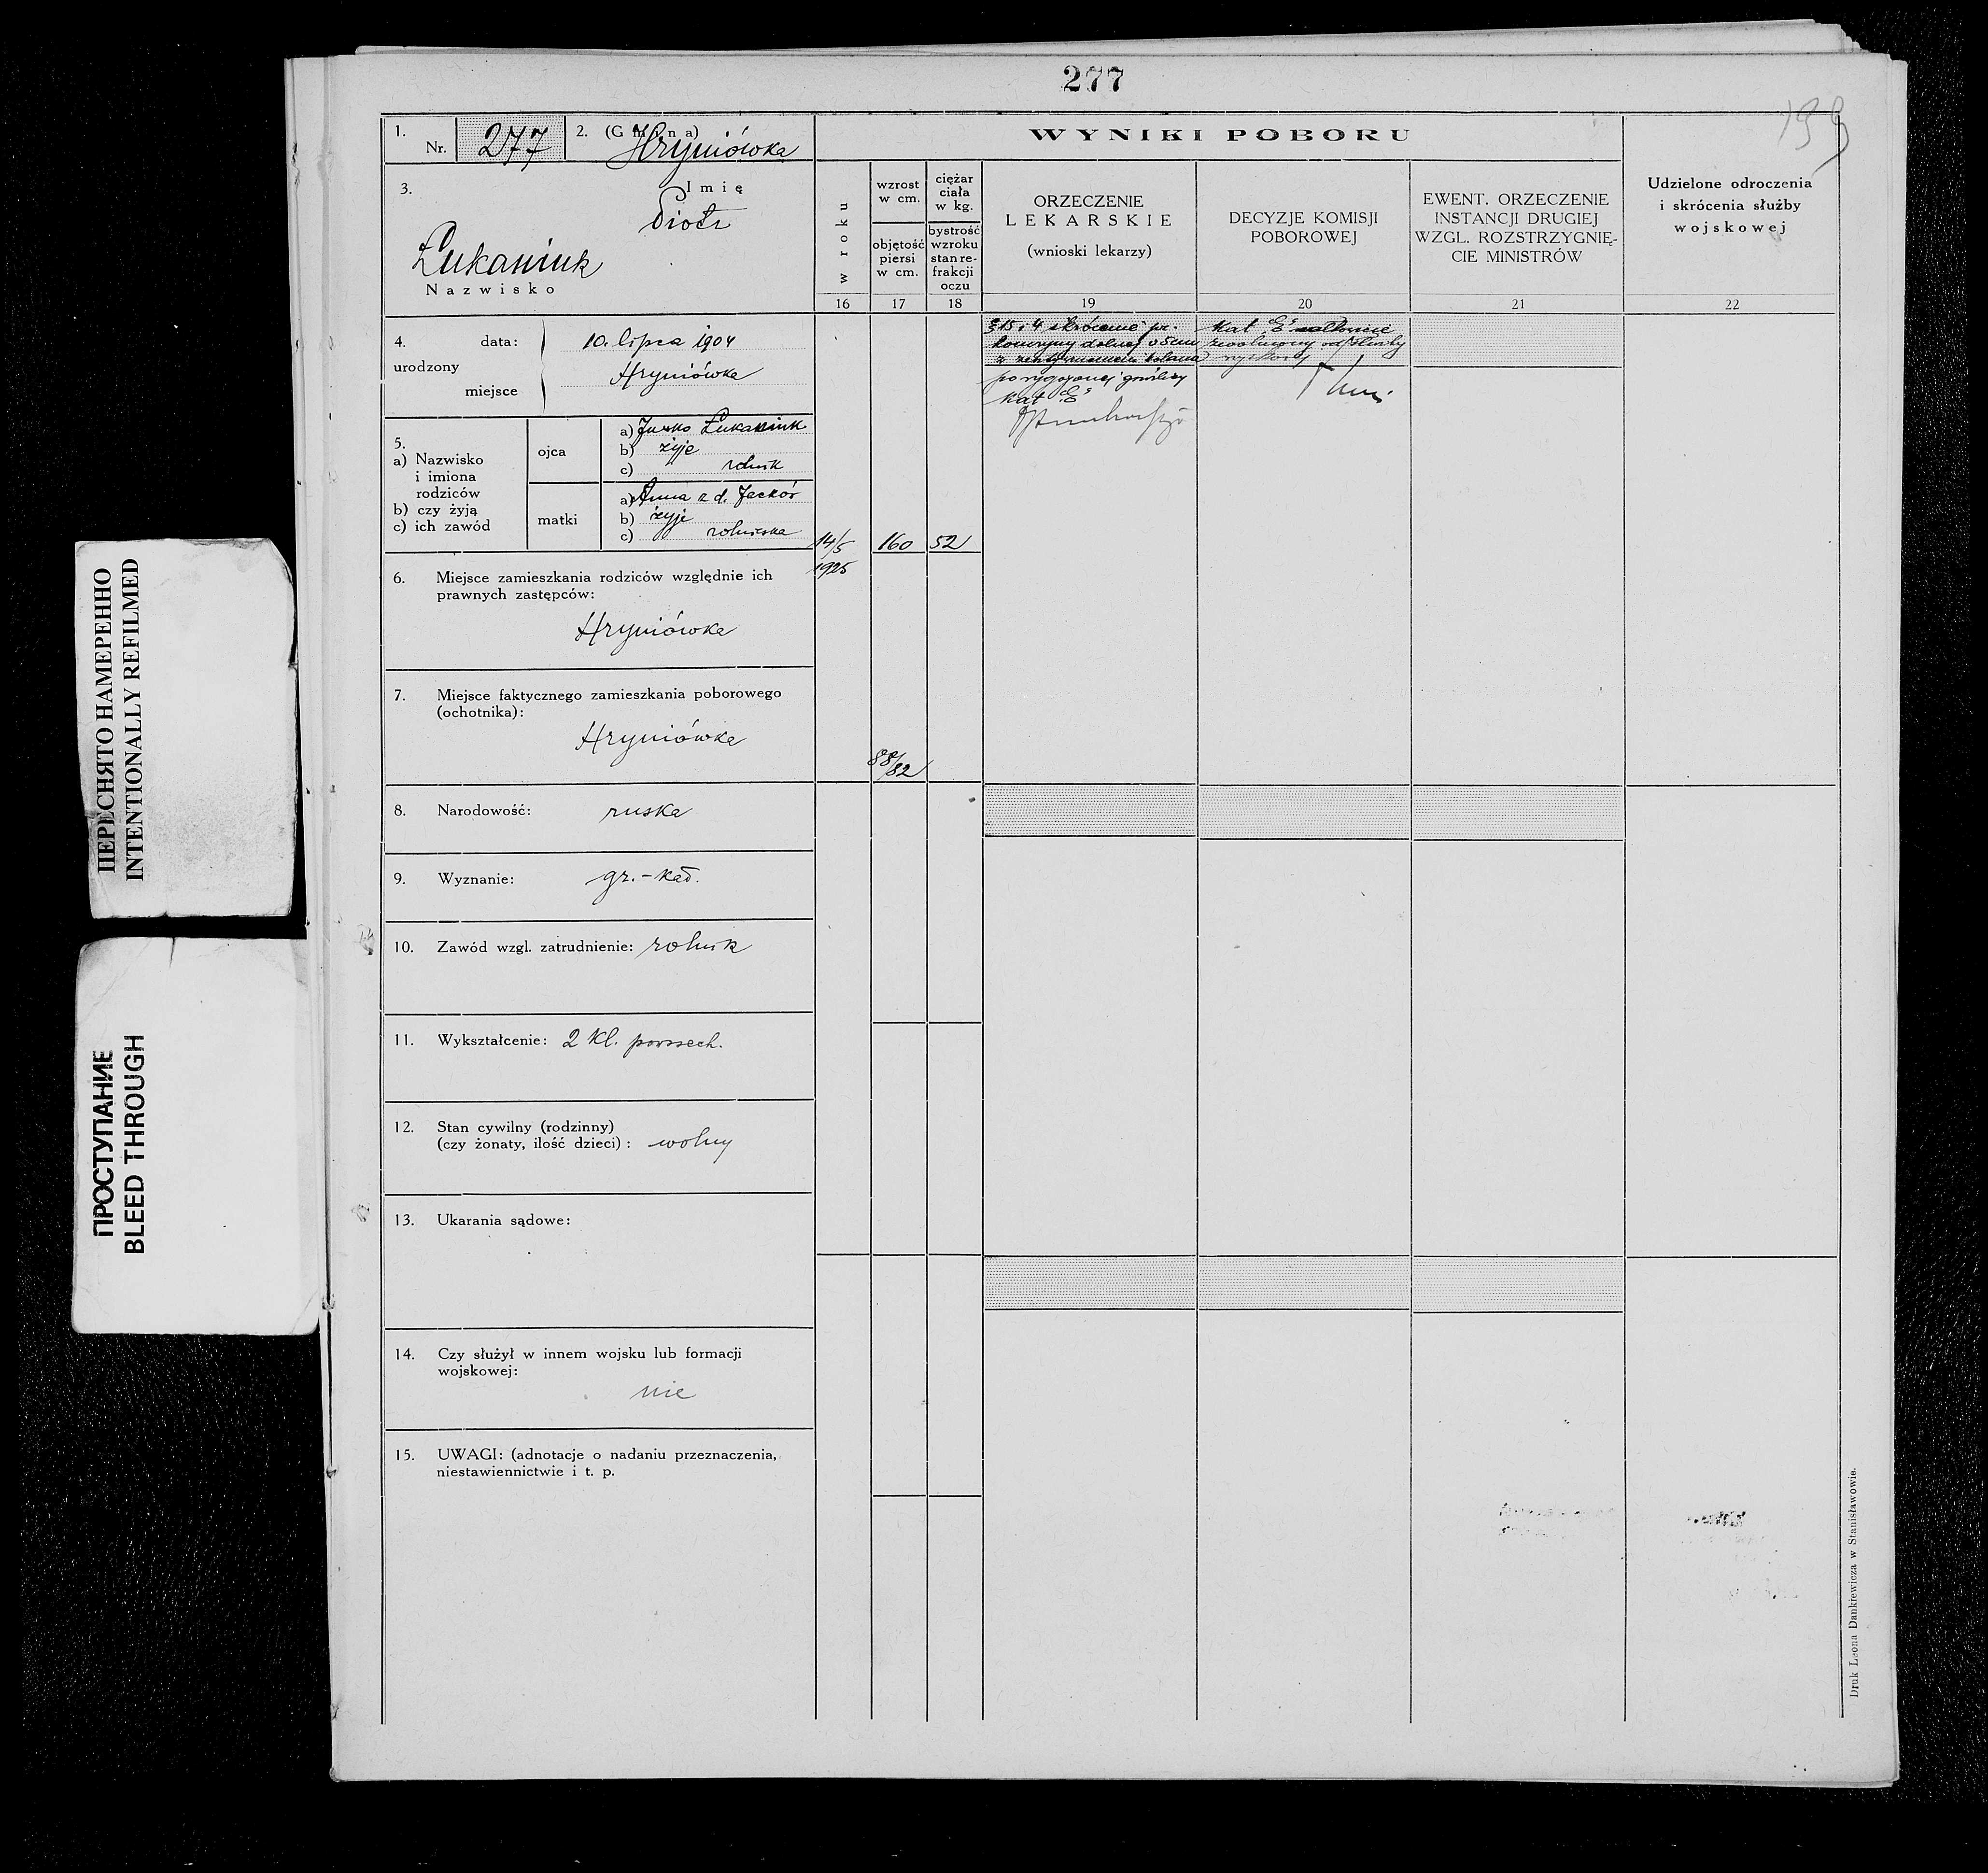 277
199
1. Nr. 277 2. (Gmina) Hryniówka
3. Imię
Piotr
Łukaniuk
Nazwisko
WYNIKI POBORU
w roku
wzrost w cm.
objętość piersi w cm.
ciężar ciała w kg.
bystrość wzroku stan refrakcji oczu
ORZECZENIE
LEKARSKIE
(wnioski lekarzy)
DECYZJE KOMISJI
POBOROWEJ
EWENT. ORZECZENIE
INSTANCJI DRUGIEJ
WZGL. ROZSTRZYGNIĘ-
CIE MINISTRÓW
Udzielone odroczenia
i skrócenia służby
wojskowej
16 17 18 19 20 21 22
4. urodzony
data: 10. lipca 1904
miejsce Hryniówka
5.
a) Nazwisko
i imiona
rodziców
b) czy żyją
c) ich zawód
ojca
a) Jurko Łukaniuk
b) żyje
c) rolnik
matki
a) Anna z d. Jacków
b) żyje
c) rolniczka
14/5
1925
160
52
88/82
§ 15 i 4 skrócenie pr.
kończyny dolnej o 5 cm
z zesztywnieniem kolana
po wygojonej gruźlicy
kat "E"
kat "E" całkowicie
zwolniony od służby
wojskowej
6. Miejsce zamieszkania rodziców względnie ich
prawnych zastępców:
Hryniówka
7. Miejsce faktycznego zamieszkania poborowego
(ochotnika):
Hryniówka
8. Narodowość: ruska
9. Wyznanie: gr.-kat.
10. Zawód wzgl. zatrudnienie: rolnik
11. Wykształcenie: 2 kl. powszech.
12. Stan cywilny (rodzinny)
(czy żonaty, ilość dzieci) : wolny
13. Ukarania sądowe:
14. Czy służył w innem wojsku lub formacji
wojskowej:
nie
15. UWAGI: (adnotacje o nadaniu przeznaczenia,
niestawiennictwie i t. p.
Druk Leona Dankiewicza w Stanisławowie.
ПЕРЕСНЯТО НАМЕРЕННО
INTENTIONALLY REFILMED
ПРОСТУПАНИЕ
BLEED THROUGH